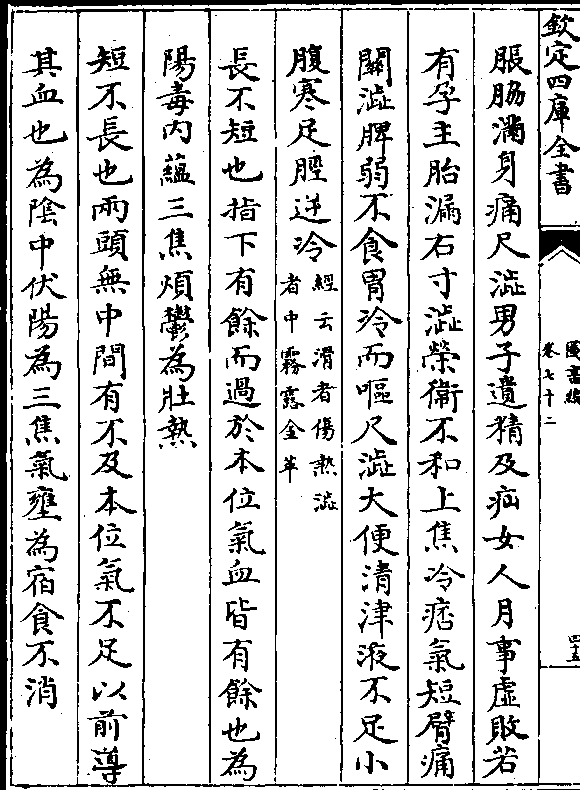 欽定四庫全書
圖書編
卷七十二
四十五
脹脇滿身痛尺澁男子遺精及疝女人月事虛敗若
有孕主胎漏右寸澁榮衞不和上焦冷痞氣短臂痛
關澁脾弱不食胃冷而嘔尺澁大便清津液不足小
腹寒足脛逆冷經云滑者傷熱澁
者中霧露金革
長不短也指下有餘而過於本位氣血皆有餘也為
陽毒内蘊三焦煩鬱為壯熱
短不長也兩頭無中間有不及本位氣不足以前導
其血也為陰中伏陽為三焦氣壅為宿食不消